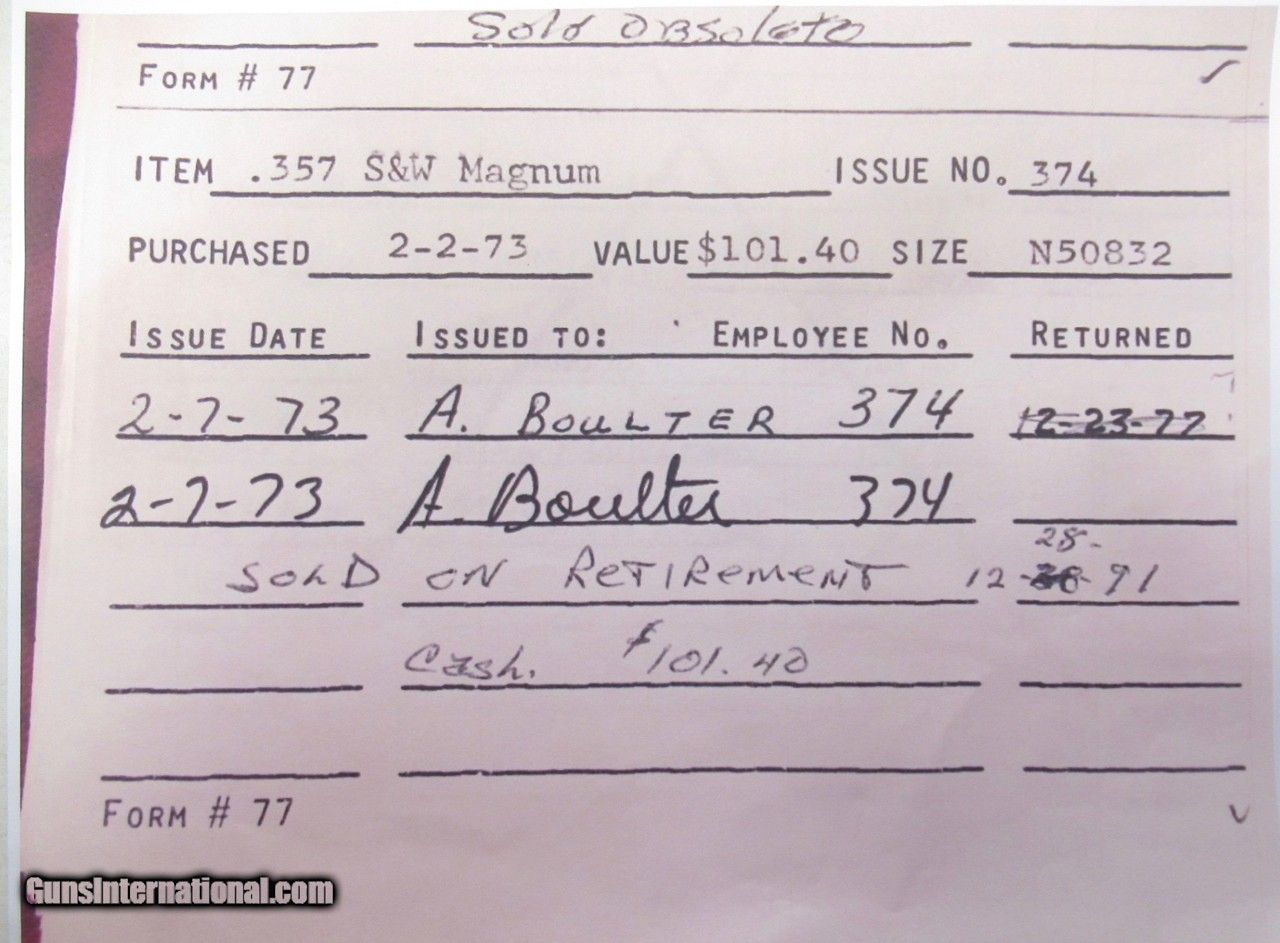 Sold Obsolete
FORM # 77
ITEM .357 S&W Magnum ISSUE NO. 374
PURCHASED 2-2-73 VALUE $101.40 SIZE N50832
ISSUE DATE ISSUED TO: EMPLOYEE NO. RETURNED
2-7-73 A. BOULTER 374 12-23-77
2-7-73 A. Boulter 374
28-
SOLD ON RETIREMENT 12- -91
Cash. $101.40
FORM # 77
GunsInternational.com